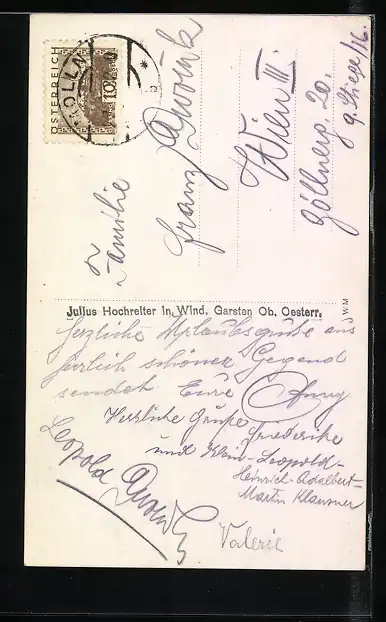 ÖSTERREICH
MOLLN
Familie
Franz Dworik
Wien III.
Göllnerg. 20.
9. Stiege/16.
Julius Hochreiter in Wind. Garsten Ob. Oesterr.
WM
Herzliche Urlaubsgrüße aus
herrlich schöner Gegend
sendet Eure Anny
Herzliche Grüße Friederike
und Klein-Leopold-
Heinrich-Adalbert-
Martin Klausner
Leopold
Valerie